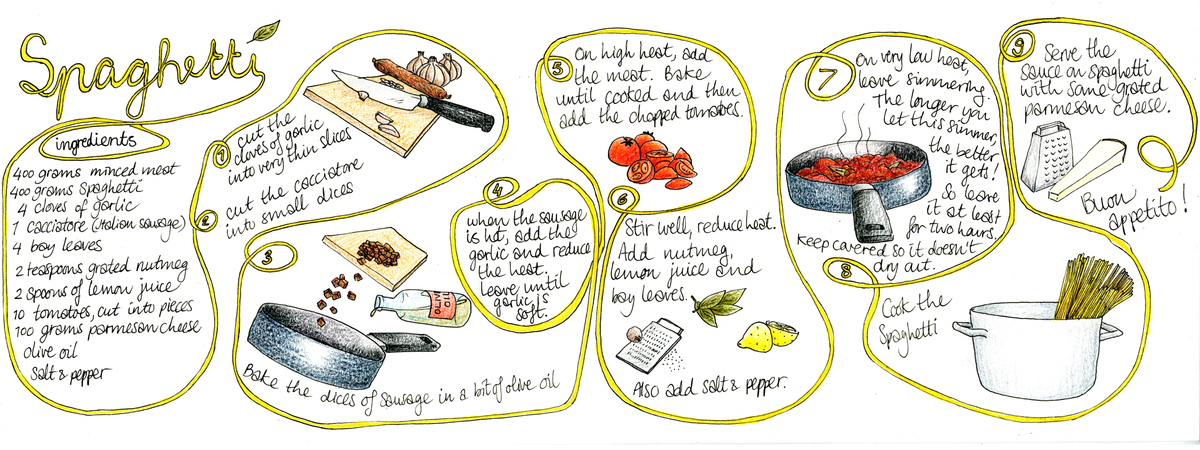 Spaghetti
ingredients
400 grams minced meat
400 grams spaghetti
4 cloves of garlic
1 cacciatore (Italian sausage)
4 bay leaves
2 teaspoons grated nutmeg
2 spoons of lemon juice
10 tomatoes, cut into pieces
100 grams parmesan cheese
olive oil
salt & pepper
1
cut the
cloves of garlic
into very thin slices
2
cut the cacciatore
into small dices
3
OLIVE
OIL
Bake the dices of sausage in a bit of olive oil
4
when the sausage
is hot, add the
garlic and reduce
the heat.
Leave until
garlic is
soft.
5
On high heat, add
the meat. Bake
until cooked and then
add the chopped tomatoes.
6
Stir well, reduce heat.
Add nutmeg,
lemon juice and
bay leaves.
Also add salt & pepper.
7
On very low heat,
leave simmering.
The longer you
let this simmer,
the better
it gets!
So leave
it at least
for two hours.
Keep covered so it doesn't
dry out.
8
Cook the
Spaghetti
9
Serve the
sauce on spaghetti
with some grated
parmesan cheese.
Buon
appetito!